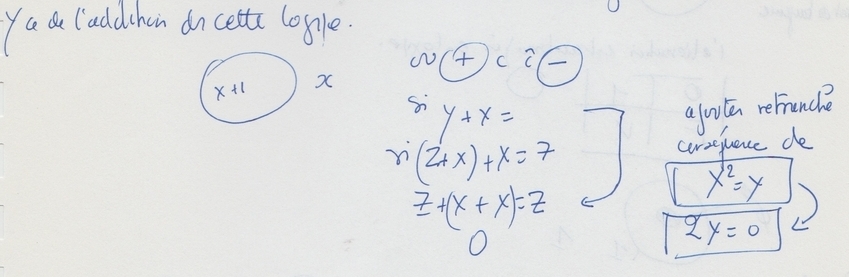 Y a de l'addition ds cette logique.
x+1 x
où + c'est -
si y + x =
si (Z+x) + x = Z
Z+(x + x)=Z
0
ajouter retranché
conséquence de
X² = X
2X = 0